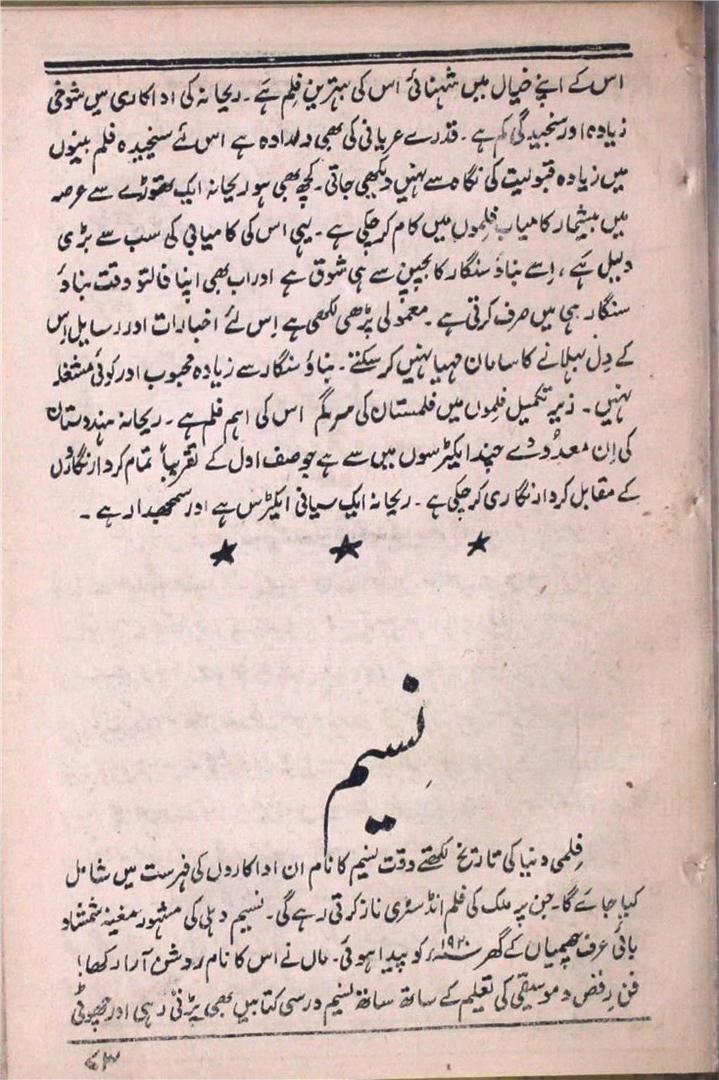 اس کے اپنے خیال میں شہنائی اس کی بہترین فلم ہے۔ ریحانہ کی اداکاری میں شوخی
زیادہ اور سنجیدگی کم ہے۔ قدرے عریانی کی بھی دلدادہ ہے اس لئے سنجیدہ فلم بینوں
میں زیادہ قبولیت کی نگاہ سے نہیں دیکھی جاتی۔ کچھ بھی ہو ریحانہ ایک تھوڑے سے عرصہ
میں بیشمار کامیاب فلموں میں کام کر چکی ہے۔ یہی اس کی کامیابی کی سب سے بڑی
دلیل ہے، اِسے بناؤ سنگار کا بچپن سے ہی شوق ہے اور اب بھی اپنا فالتو وقت بناؤ
سنگار ہی میں صرف کرتی ہے۔ معمولی پڑھی لکھی ہے اِس لئے اخبارات اور رسایل اِس
کے دِل بہلانے کا سامان مہیا نہیں کر سکتے۔ بناؤ سنگار سے زیادہ محبوب اور کوئی مشغلہ
نہیں۔ زیرِ تکمیل فلموں میں فلمستان کی سرگم اس کی اہم فلم ہے۔ ریحانہ ہندوستان
کی اِن معدُودے چند ایکٹرسوں میں سے ہے جو صف اول کے تقریباً تمام کردار نگاروں
کے مقابل کردار نگاری کر چکی ہے۔ ریحانہ ایک سیانی ایکٹرس ہے اور سمجھدار ہے۔
نسیم
فِلمی دنیا کی تاریخ لکھتے وقت نسیم کا نام ان اداکاروں کی فہرست میں شامل
کیا جائے گا۔ جن پر ملک کی فلم انڈسٹری ناز کرتی رہے گی۔ نسیم دہلی کی مشہور مغنیہ شمشاد
بائی عرف چھمیاں کے گھر ۱۹۲۰ء کو پیدا ہوئی۔ ماں نے اس کا نام روشن آرا رکھا!
فنِ رقص و موسیقی کی تعلیم کے ساتھ ساتھ نسیم درسی کتابیں بھی پڑتی رہی اور چھوٹی
۶۳